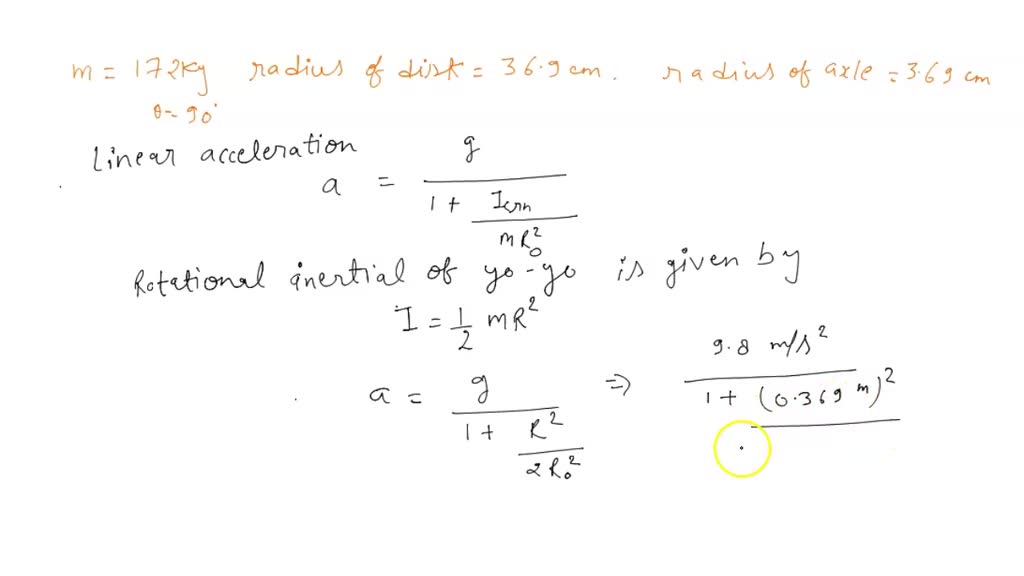 m = 172Kg radius of disk = 36.9 cm. radius of axle = 3.69 cm
θ = 90°
Linear acceleration
a = g / (1 + Icm / mR₀²)
Rotational inertial of yo-yo is given by
I = 1/2 mR²
a = g / (1 + R² / 2R₀²) ⇒ 9.8 m/s² / (1 + (0.369 m)²